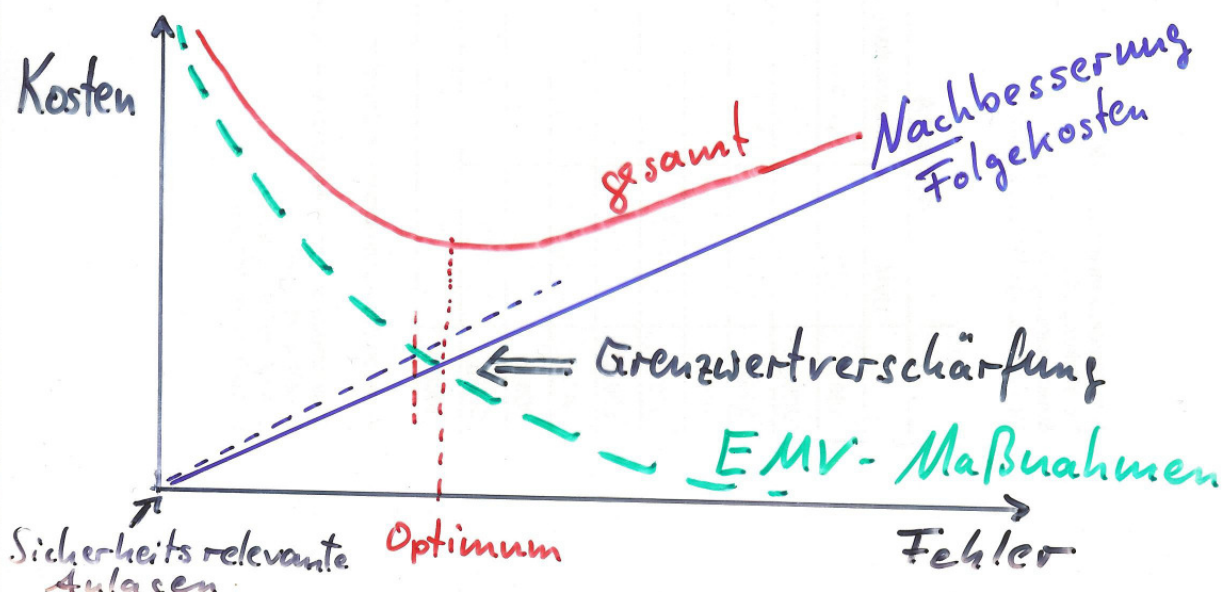 Kosten
gesamt
Nachbesserung
Folgekosten
Grenzwertverschärfung
EMV-Maßnahmen
Sicherheitsrelevante
Anlagen
Optimum
Fehler